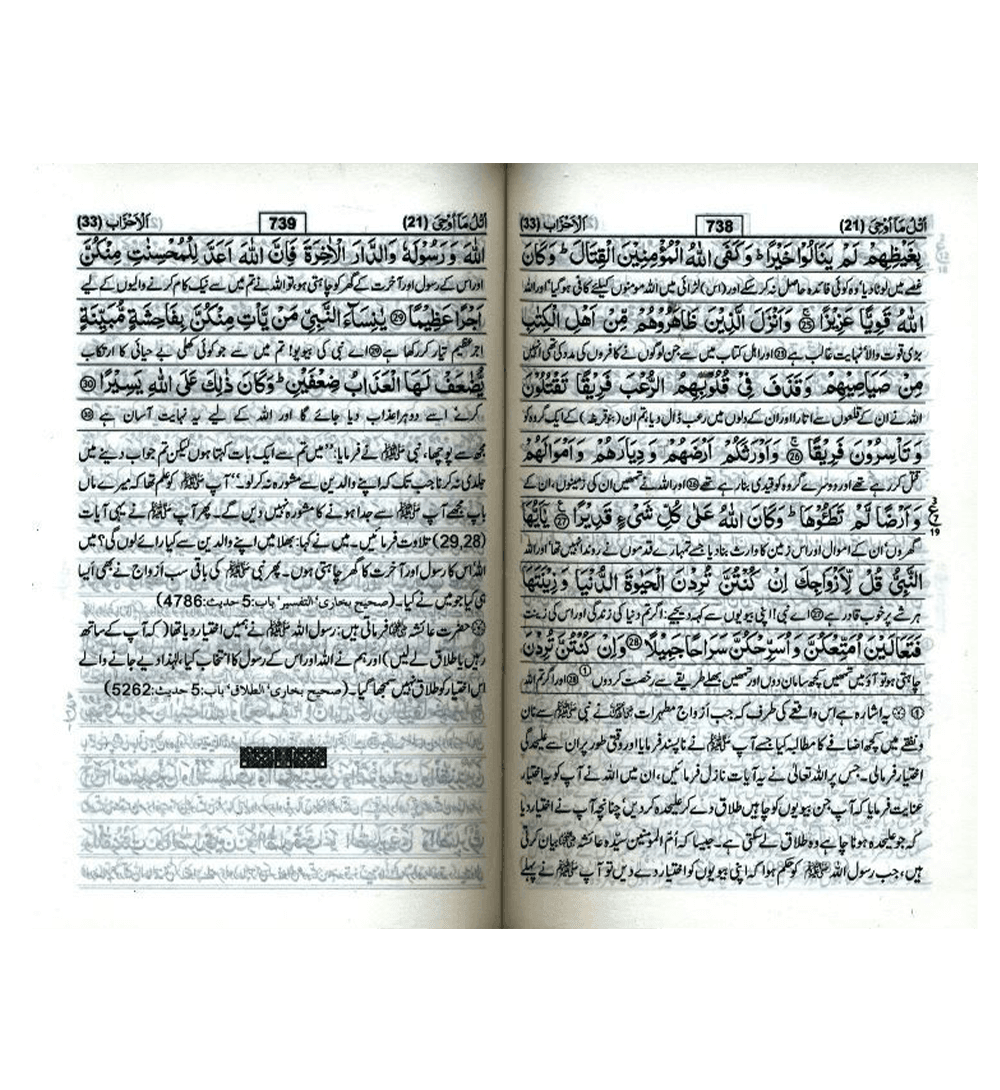 اُتْلُ مَآ اُوْحِیَ (21)
738
اَلْاَحْزَاب (33)
بِغَيْظِهِمْ لَمْ يَنَالُوْا خَيْرًا ؕ وَكَفَى اللّٰهُ الْمُؤْمِنِيْنَ الْقِتَالَ ؕ وَكَانَ
غصے میں لوٹا دیا' وہ کوئی فائدہ حاصل نہ کر سکے اور (اس) لڑائی میں اللہ مومنوں کیلئے کافی ہو گیا' اور اللہ
اللّٰهُ قَوِيًّا عَزِيْزًا ۚ ㉕ وَاَنْزَلَ الَّذِيْنَ ظَاهَرُوْهُمْ مِّنْ اَهْلِ الْكِتٰبِ
بڑی قوت والا نہایت غالب ہے ㉕ اور اہل کتاب میں سے جن لوگوں نے کافروں کی مدد کی تھی انہیں
مِنْ صَيَاصِيْهِمْ وَقَذَفَ فِيْ قُلُوْبِهِمُ الرُّعْبَ فَرِيْقًا تَقْتُلُوْنَ
اللہ نے ان کے قلعوں سے اتارا اور ان کے دلوں میں رعب ڈال دیا، تم ان (بنو قریظہ) کے ایک گروہ کو
وَتَاْسِرُوْنَ فَرِيْقًا ۚ ㉖ وَاَوْرَثَكُمْ اَرْضَهُمْ وَدِيَارَهُمْ وَاَمْوَالَهُمْ
قتل کر رہے تھے اور دوسرے گروہ کو قیدی بنا رہے تھے ㉖ اور اللہ نے تمھیں ان کی زمینوں، ان کے
وَاَرْضًا لَّمْ تَطَـُٔوْهَا ؕ وَكَانَ اللّٰهُ عَلٰى كُلِّ شَيْءٍ قَدِيْرًا ۧ ㉗ يٰٓاَيُّهَا
3 ع 19
گھروں' ان کے اموال اور اس زمین کا وارث بنا دیا جسے تمہارے قدموں نے روندا نہیں تھا' اور اللہ
النَّبِيُّ قُلْ لِّاَزْوَاجِكَ اِنْ كُنْتُنَّ تُرِدْنَ الْحَيٰوةَ الدُّنْيَا وَزِيْنَتَهَا
ہر شے پر خوب قادر ہے ㉗ اے نبی! اپنی بیویوں سے کہہ دیجیے: اگر تم دنیا کی زندگی اور اس کی زینت
فَتَعَالَيْنَ اُمَتِّعْكُنَّ وَاُسَرِّحْكُنَّ سَرَاحًا جَمِيْلًا ㉘ وَاِنْ كُنْتُنَّ تُرِدْنَ
چاہتی ہو تو آؤ میں تمھیں کچھ سامان دوں اور تمھیں بھلے طریقے سے رخصت کر دوں ① ㉘ اور اگر تم اللہ
① یہ اشارہ ہے اس واقعے کی طرف کہ جب ازواج مطہرات نے نبی ﷺ سے نان
و نفقے میں کچھ اضافے کا مطالبہ کیا جسے آپ ﷺ نے ناپسند فرمایا اور وقتی طور پر ان سے علیحدگی
اختیار فرما لی۔ جس پر اللہ تعالیٰ نے یہ آیات نازل فرمائیں، ان میں اللہ نے آپ کو یہ اختیار
عنایت فرمایا کہ آپ جن بیویوں کو چاہیں طلاق دے کر علیحدہ کر دیں' چنانچہ آپ نے اختیار دیا
کہ جو علیحدہ ہونا چاہے وہ طلاق لے سکتی ہے۔ جیسا کہ ام المومنین سیدہ عائشہ بیان کرتی
ہیں، جب رسول اللہ ﷺ کو حکم ہوا کہ اپنی بیویوں کو اختیار دے دیں تو آپ ﷺ نے پہلے
اُتْلُ مَآ اُوْحِیَ (21)
739
اَلْاَحْزَاب (33)
اللّٰهَ وَرَسُوْلَهٗ وَالدَّارَ الْاٰخِرَةَ فَاِنَّ اللّٰهَ اَعَدَّ لِلْمُحْسِنٰتِ مِنْكُنَّ
اور اس کے رسول اور آخرت کے گھر کو چاہتی ہو، تو اللہ نے تم میں سے نیک کام کرنے والیوں کے لیے
اَجْرًا عَظِيْمًا ㉙ يٰنِسَآءَ النَّبِيِّ مَنْ يَّاْتِ مِنْكُنَّ بِفَاحِشَةٍ مُّبَيِّنَةٍ
اجر عظیم تیار کر رکھا ہے ㉙ اے نبی کی بیویو! تم میں سے جو کوئی کھلی بے حیائی کا ارتکاب
يُّضٰعَفْ لَهَا الْعَذَابُ ضِعْفَيْنِ ؕ وَكَانَ ذٰلِكَ عَلَى اللّٰهِ يَسِيْرًا ㉚
کرے اسے دوہرا عذاب دیا جائے گا اور اللہ کے لیے یہ نہایت آسان ہے ㉚
مجھ سے پوچھا، نبی ﷺ نے فرمایا: ''میں تم سے ایک بات کہتا ہوں لیکن تم جواب دینے میں
جلدی نہ کرنا جب تک کہ اپنے والدین سے مشورہ نہ کر لو۔'' آپ ﷺ کو علم تھا کہ میرے ماں
باپ مجھے آپ ﷺ سے جدا ہونے کا مشورہ نہیں دیں گے۔ پھر آپ ﷺ نے یہی آیات
(29,28) تلاوت فرمائیں۔ میں نے کہا: بھلا میں اپنے والدین سے کیا رائے لوں گی؟ میں
اللہ اس کا رسول اور آخرت کا گھر چاہتی ہوں۔ پھر نبی ﷺ کی باقی سب ازواج نے بھی ایسا
ہی کیا جو میں نے کیا۔ (صحیح بخاری' التفسیر' باب:5 حدیث:4786)
حضرت عائشہ فرماتی ہیں: رسول اللہ ﷺ نے ہمیں اختیار دیا تھا (کہ آپ کے ساتھ
رہیں یا طلاق لے لیں) اور ہم نے اللہ اور اس کے رسول کا انتخاب کیا، لہٰذا دیے جانے والے
اس اختیار کو طلاق نہیں سمجھا گیا۔ (صحیح بخاری' الطلاق' باب:5 حدیث:5262)